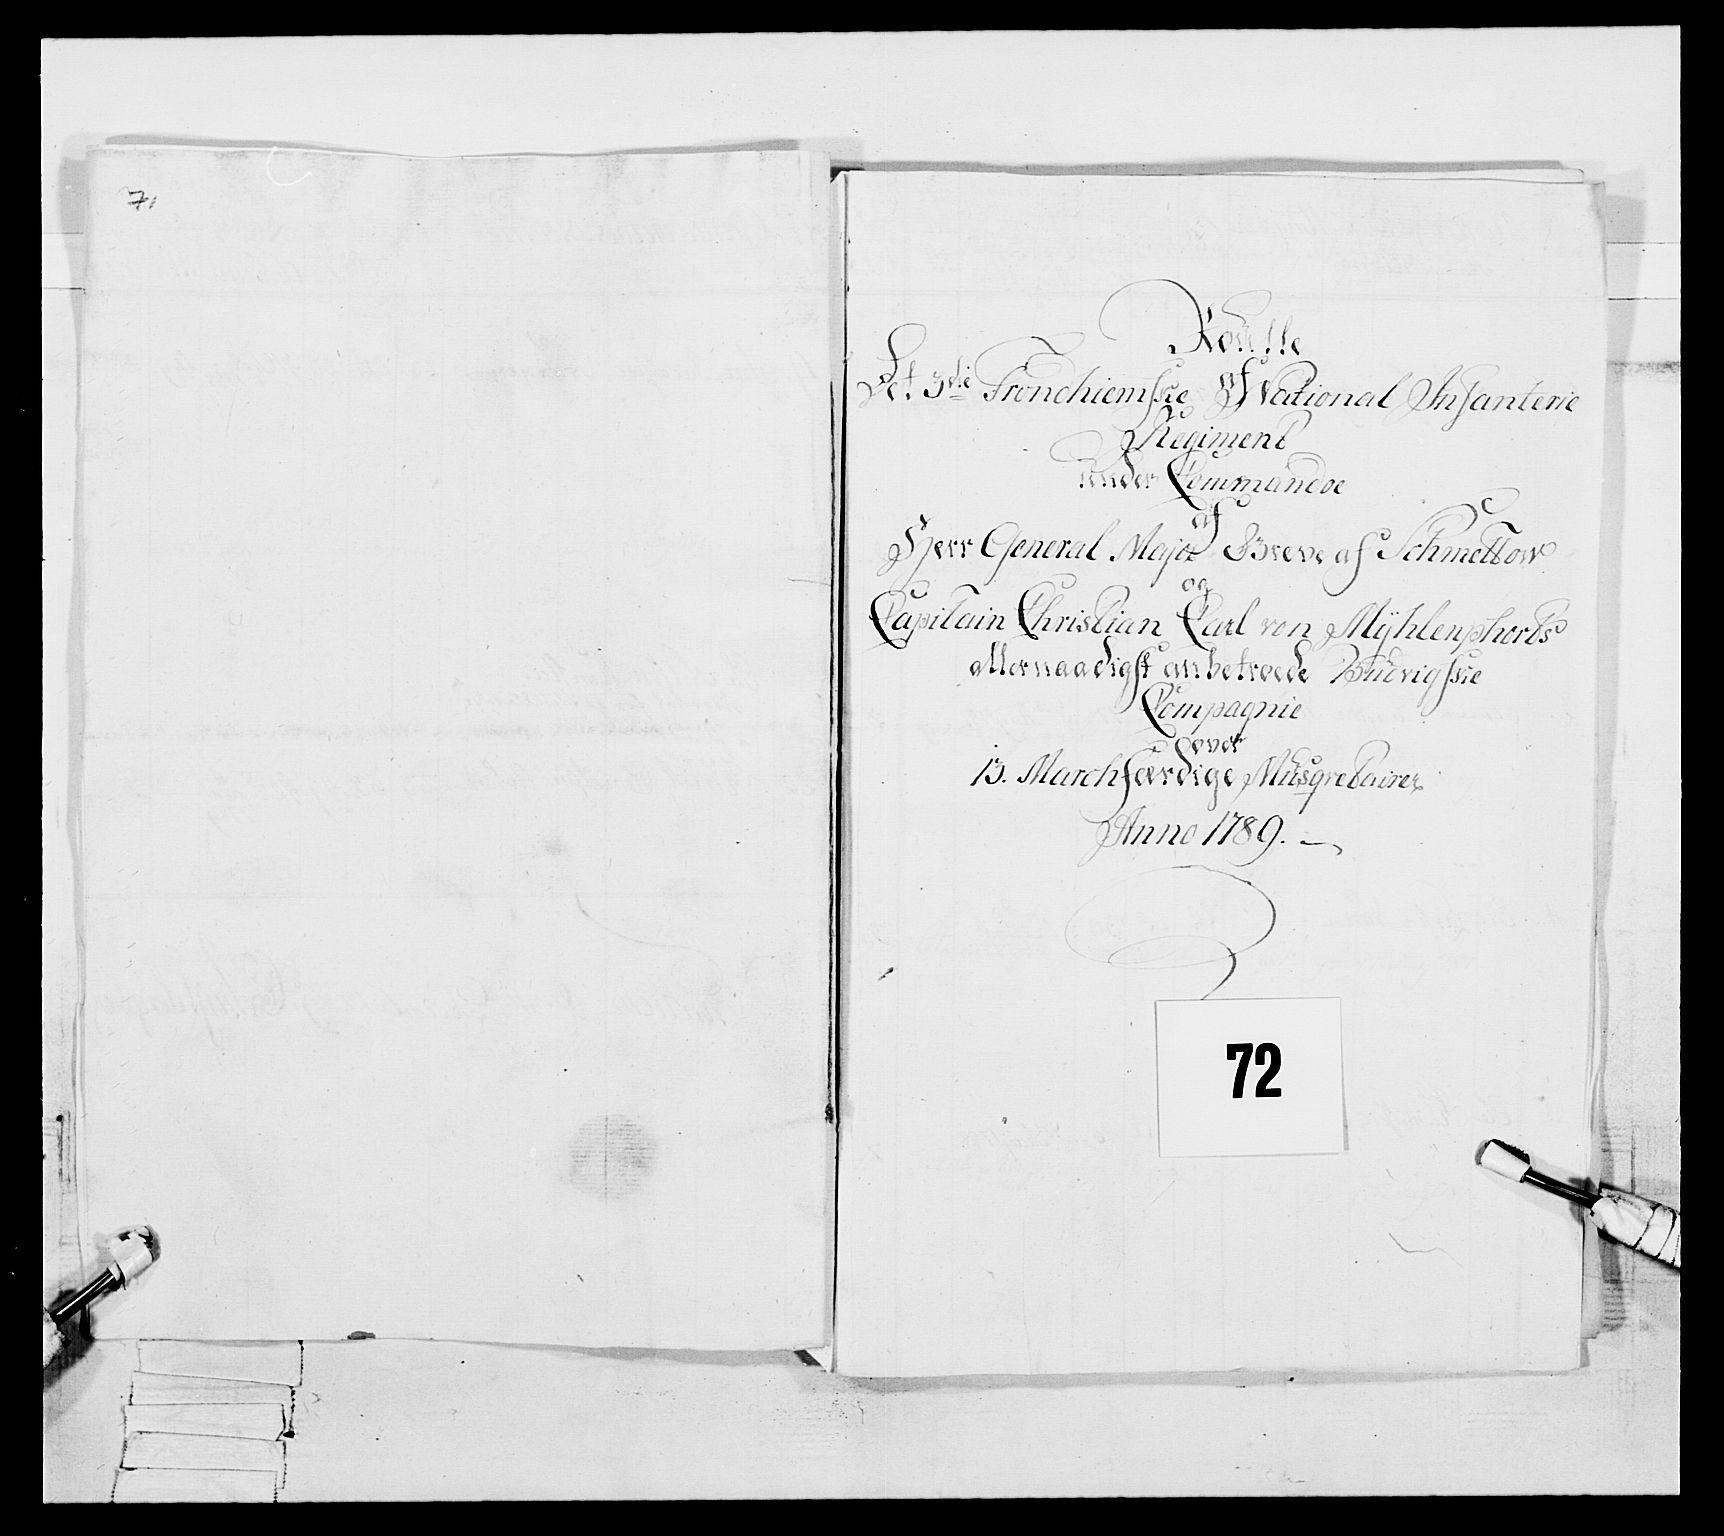 7.
Roulle
af
Det 3die Tronhiemske National Infanterie
Regiment
under Commandoe
af
Herr General Major Greve af Schmettow
og
Capitain Christian Carl von Mÿhlenphorts
allernaadigst anbetroede Budvigske
Compagnie
over
13. Marchfærdige Musqvetairer
Anno 1789.
72